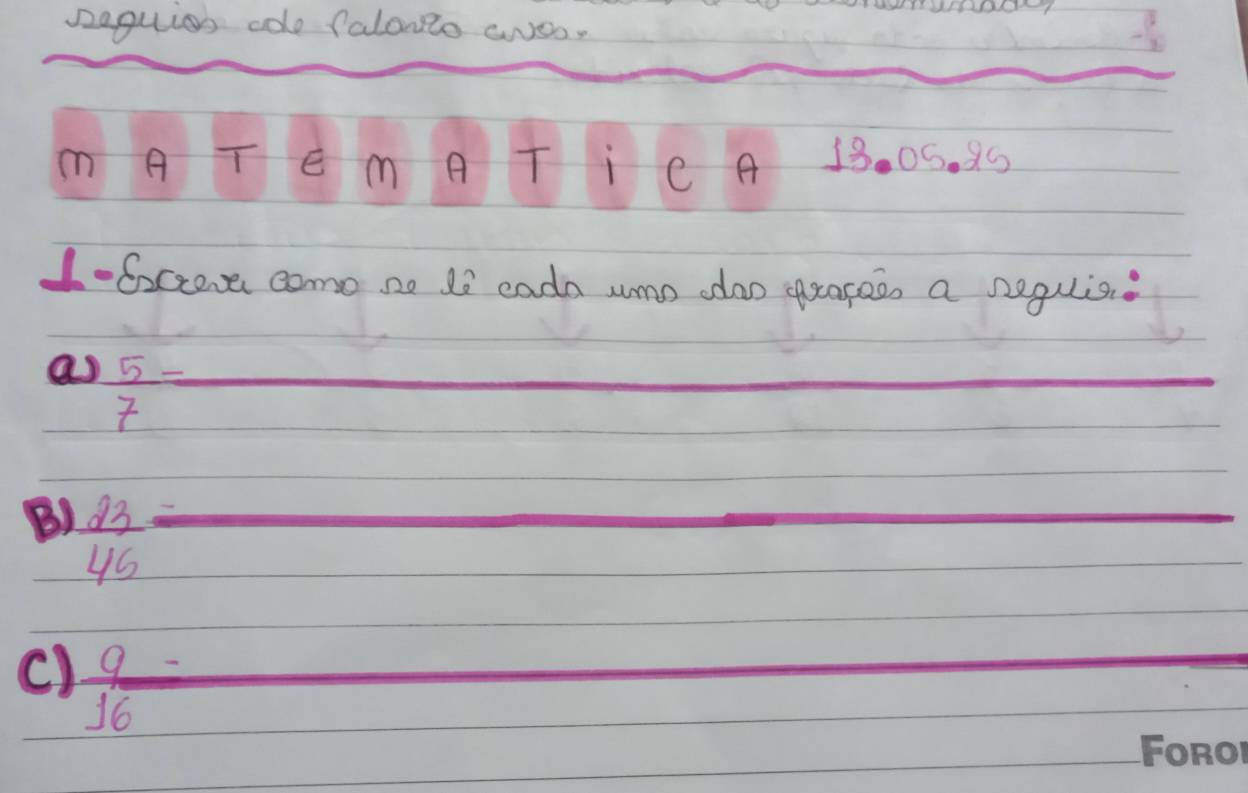 seguios de falando avos.
MATEMATICA 13.05.25
1-Escreva como se lê cada uma das frações a seguir:
a) 5 -
7
B) 23 -
45
C) 9 -
16
FORO